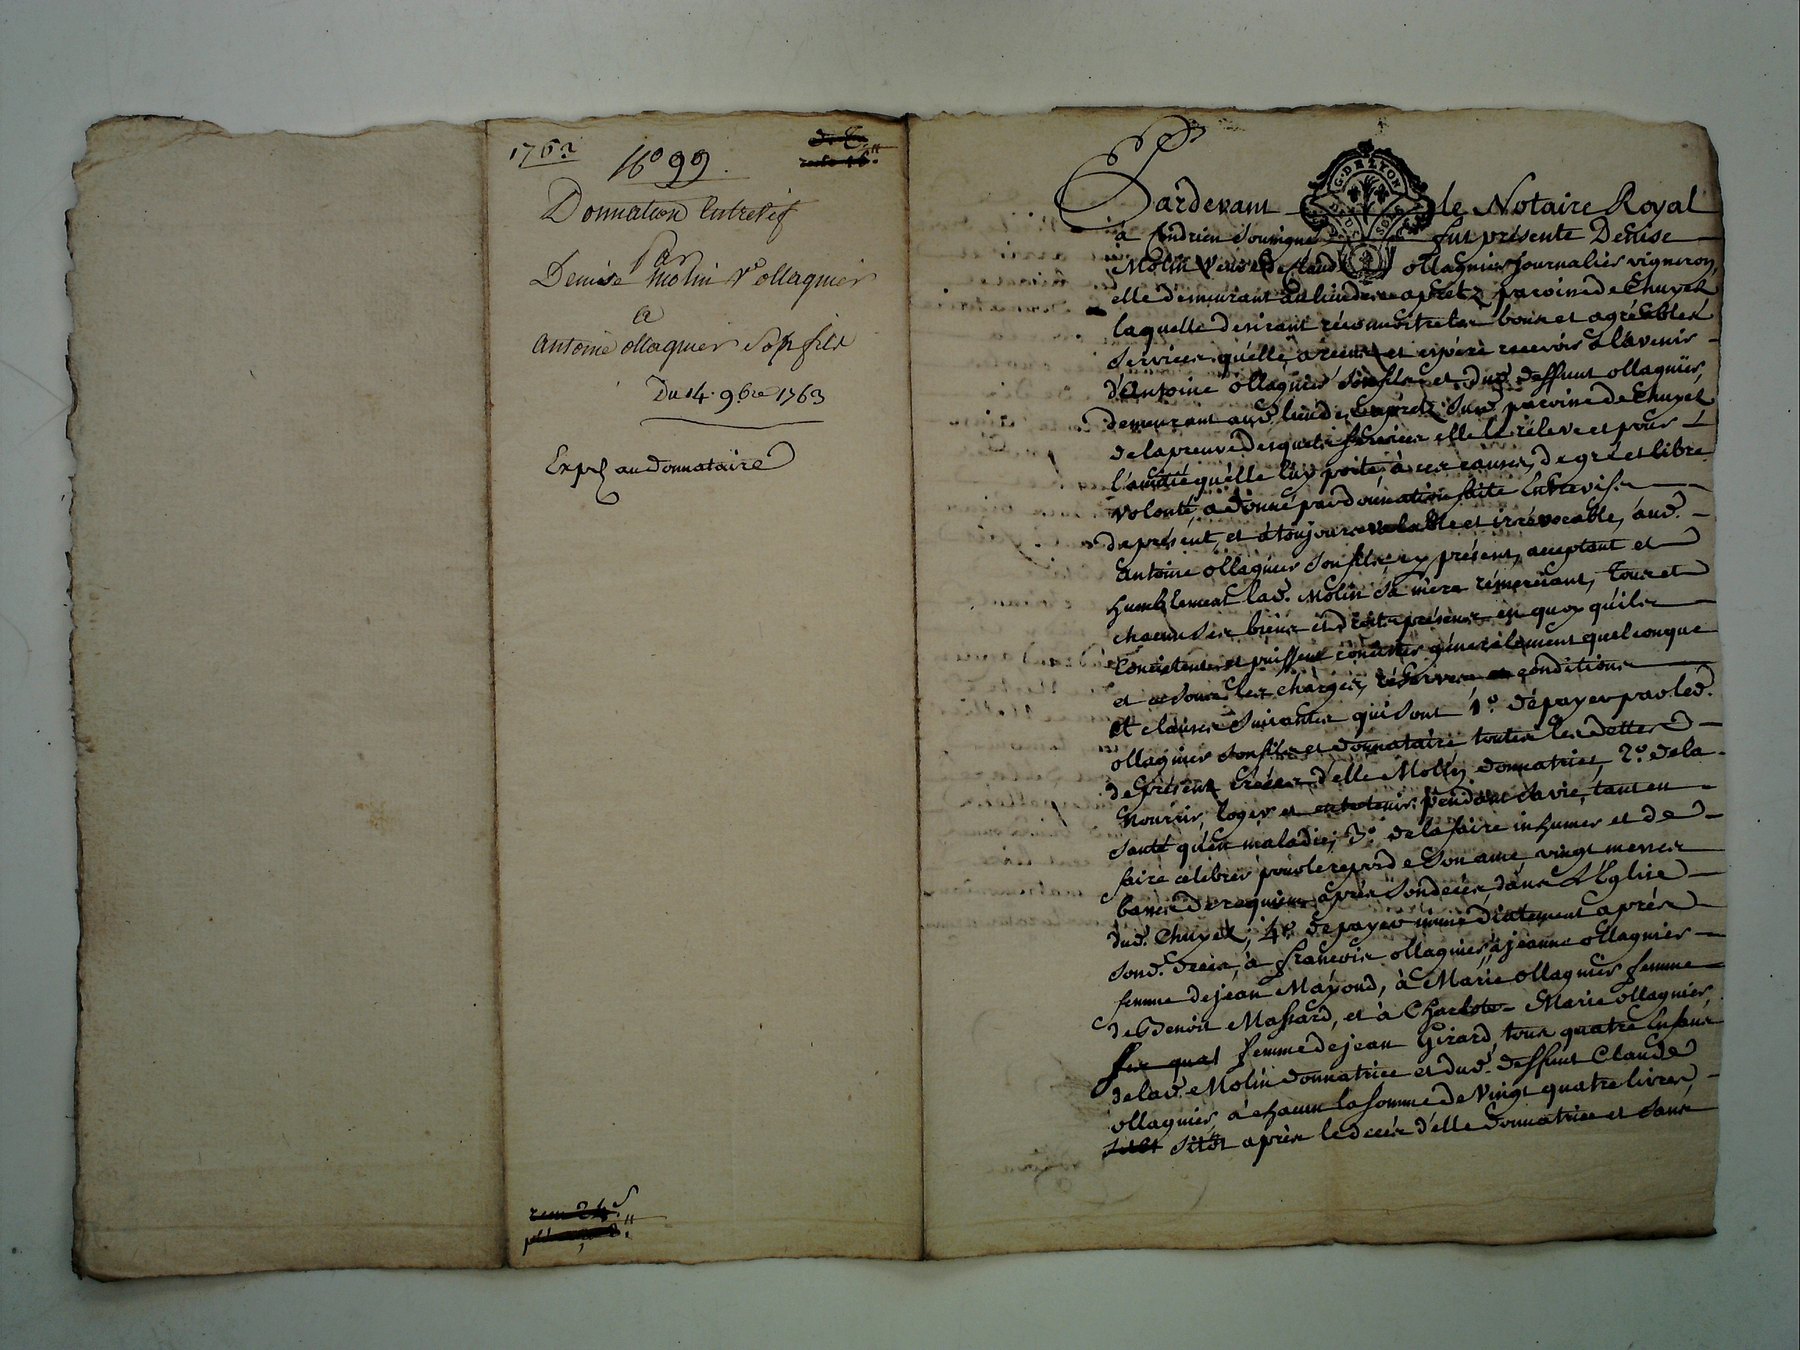 1763
N° 99.
Donnation Entrevif
Par
Denise Molin Ve ollagnier
a
Antoine ollagnier Son fils
Du 14. 9.bre 1763
Exp au donnataire
Pardevant le Notaire Royal
G. DE LYON
à Condrieu Soussigné fut présente Denise
Molin Veuve de Claude ollagnier Journalier vigneron,
elle demeurant au lieu de paroisse de Chuyer
laquelle desirant réconnoitre les bons et agréables
Services quélle a reçus et espére recevoir à l'avenir
d'Antoine ollagnier Son fils et dud. deffunt ollagnier,
demeurant aud. lieu de Sud. paroisse de Chuyer
de la preuve desquels Services elle le réleve et pour
l'amitié quélle luy porte, à ces causes, de gré et libre
volonté, a donné par donnation faite Entrevifs
de présent, et à toujours valable et irrévocable, aud.
Antoine ollagnier Son fils icy présent, acceptant et
humblement lad. Molin Sa mère rémerciant, tous et
chacuns Ses biens et droits présens en quoy qu'ils
Concistent et puissent concister généralement quelconque
et ce sous les charges, réserves et conditions
et clauses Suivantes qui sont 1°. dépayer par led.
ollagnier Son fils et donnataire toutes les dettes
de présent créées d'elle Molin donnatrice, 2°. de la
Nourrir, loger et entretenir pendant Sa vie, tant en
Santé qu'en maladie, 3°. de la faire inhumer et de
faire célébrer pour le repos de Son ame vingt messes
basses de requiem après Son decés, dans L'Eglise
dud. Chuyer, 4°. de payer immédiatement après
Sond. decés, à François ollagnier, à jeanne ollagnier
femme de jean Mayoud, à Marie ollagnier femme
de Benoit Massard, et à Charlote Marie ollagnier,
femme de jean Girard, tous quatre Enfans
de lad. Molin donnatrice et dud. deffunt Claude
ollagnier, à chacun la somme de Vingt quatre livres,
Sitôt après le decés d'elle donnatrice et Sans